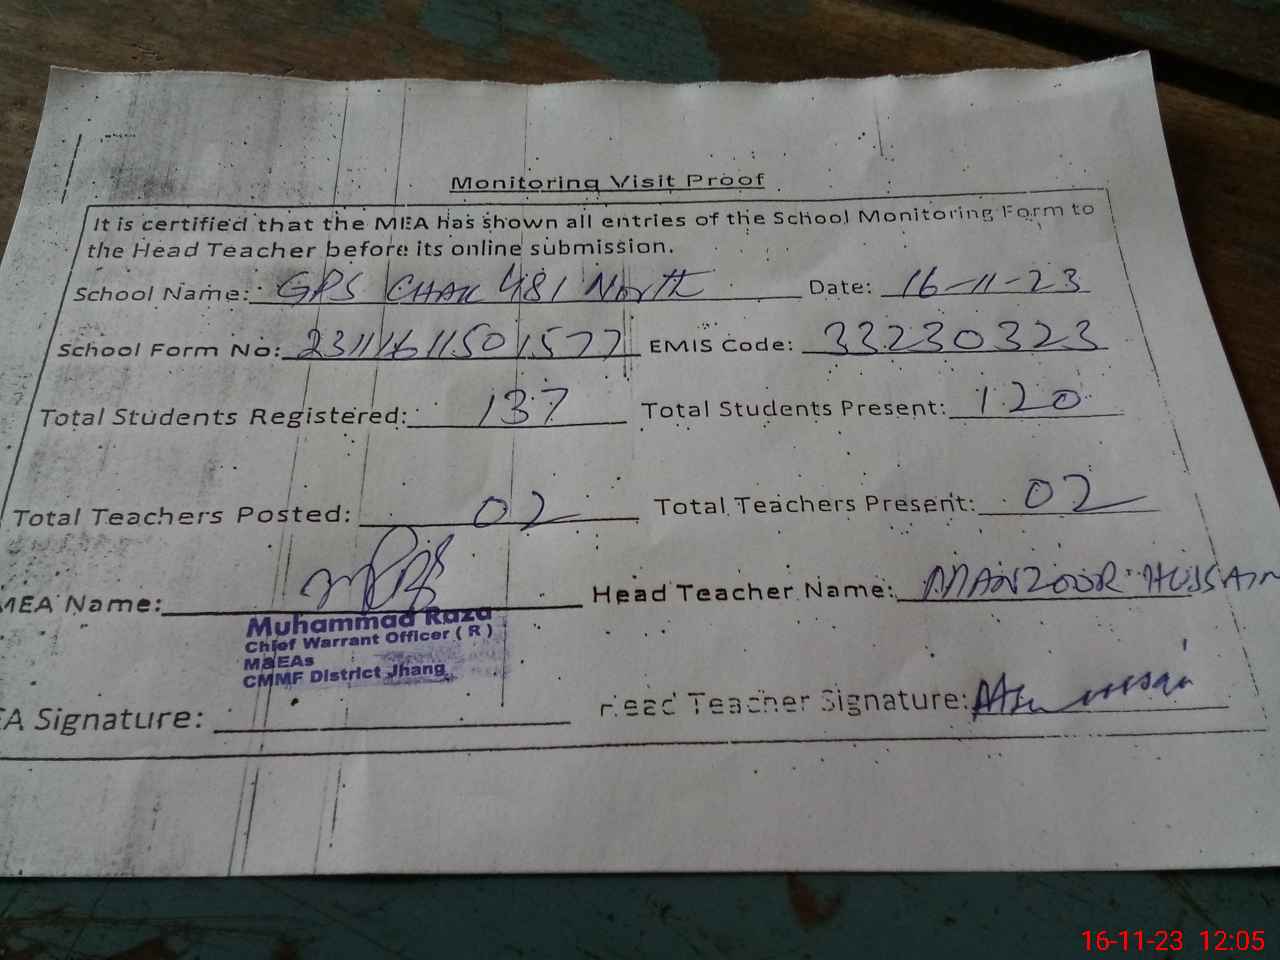 Monitoring Visit Proof
It is certified that the MEA has shown all entries of the School Monitoring Form to
the Head Teacher before its online submission.
School Name: GPS CHAK 481 North Date: 16-11-23
School Form No: 23111611501577 EMIS Code: 33230323
Total Students Registered: 137 Total Students Present: 120
Total Teachers Posted: 02 Total Teachers Present: 02
MEA Name: Head Teacher Name: MANZOOR HUSSAIN
Muhammad Raza
Chief Warrant Officer ( R )
M&EAs
CMMF District Jhang
EA Signature: Head Teacher Signature:
16-11-23 12:05